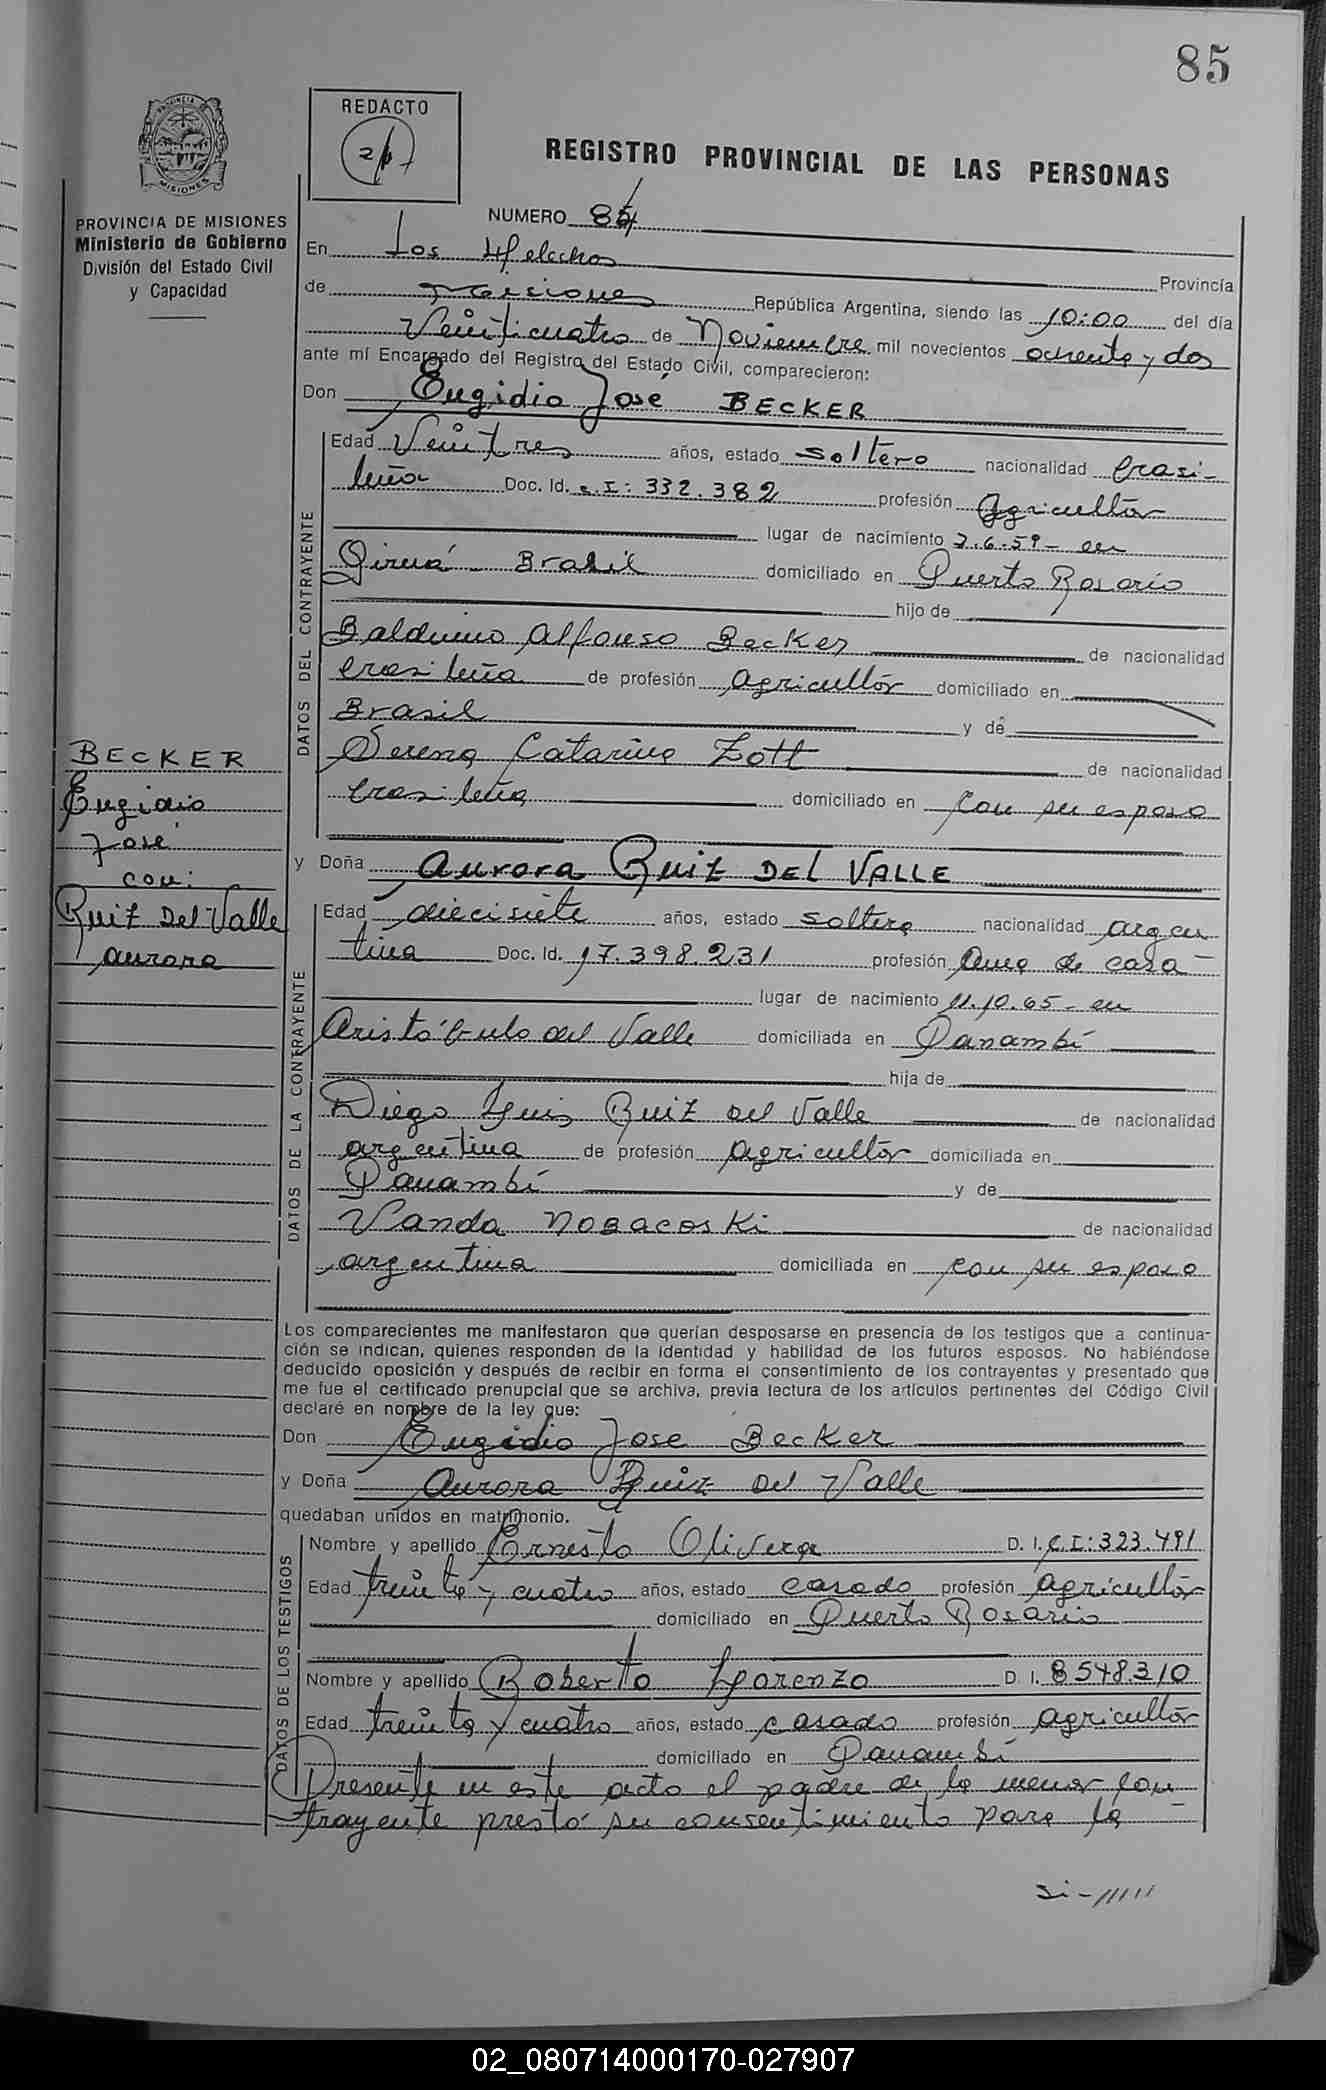 85
REDACTO
REGISTRO PROVINCIAL DE LAS PERSONAS
MISIONES
PROVINCIA DE MISIONES
Ministerio de Gobierno
División del Estado Civil
y Capacidad
NUMERO 84
En Los Helechos
Provincia
de Misiones República Argentina, siendo las 10:00 del día
Veinticuatro de Noviembre mil novecientos ochenta y dos
ante mí Encargado del Registro del Estado Civil, comparecieron:
Don Eugidio José BECKER
DATOS DEL CONTRAYENTE
Edad Veintres años, estado soltero nacionalidad brasi-
leña Doc. Id. C.I: 332.382 profesión Agricultor
lugar de nacimiento 2.6.59- en
Giruá - Brasil domiciliado en Puerto Rosario
hijo de
Balduino Alfonso Becker de nacionalidad
brasileña de profesión Agricultor domiciliado en
Brasil y de
Serena Catarina Zott de nacionalidad
brasileña domiciliado en con su esposo
BECKER
Eugidio
José
con:
Ruiz Del Valle
Aurora
y Doña Aurora Ruiz DEL VALLE
DATOS DE LA CONTRAYENTE
Edad diecisiete años, estado soltera nacionalidad argen
tina Doc. Id. 17.398.231 profesión Ama de casa
lugar de nacimiento 11.10.65- en
Aristóbulo del Valle domiciliada en Panambí
hija de
Diego Luis Ruiz del Valle de nacionalidad
argentina de profesión Agricultor domiciliada en
Panambí y de
Vanda Nosacoski de nacionalidad
argentina domiciliada en con su esposo
Los comparecientes me manifestaron que querían desposarse en presencia de los testigos que a continua-
ción se indican, quienes responden de la identidad y habilidad de los futuros esposos. No habiéndose
deducido oposición y después de recibir en forma el consentimiento de los contrayentes y presentado que
me fue el certificado prenupcial que se archiva, previa lectura de los artículos pertinentes del Código Civil
declaré en nombre de la ley que:
Don Eugidio Jose Becker
y Doña Aurora Ruiz del Valle
quedaban unidos en matrimonio.
DATOS DE LOS TESTIGOS
Nombre y apellido Ernesto Olivera D. I. C.I:323.491
Edad treinta y cuatro años, estado casado profesión agricultor
domiciliado en Puerto Rosario
Nombre y apellido Roberto Lorenzo D. I. 8548310
Edad treinta y cuatro años, estado casado profesión agricultor
domiciliado en Panambí
Presente en este acto el padre de la menor con
trayente prestó su consentimiento para la
si-//////
02_080714000170-027907